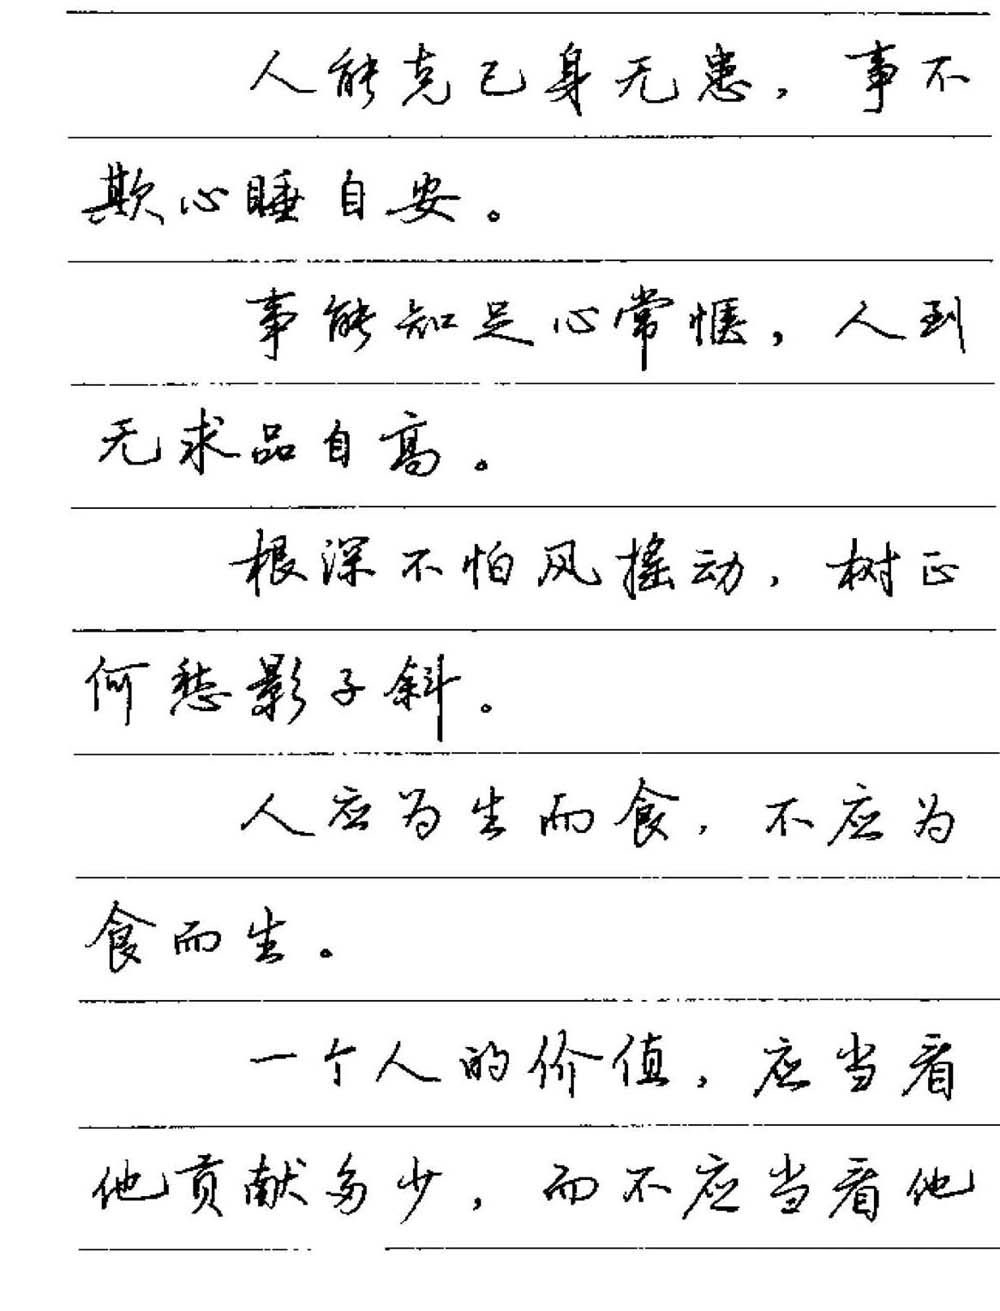 人能克己身无患，事不
欺心睡自安。
事能知足心常惬，人到
无求品自高。
根深不怕风摇动，树正
何愁影子斜。
人应为生而食，不应为
食而生。
一个人的价值，应当看
他贡献多少，而不应当看他